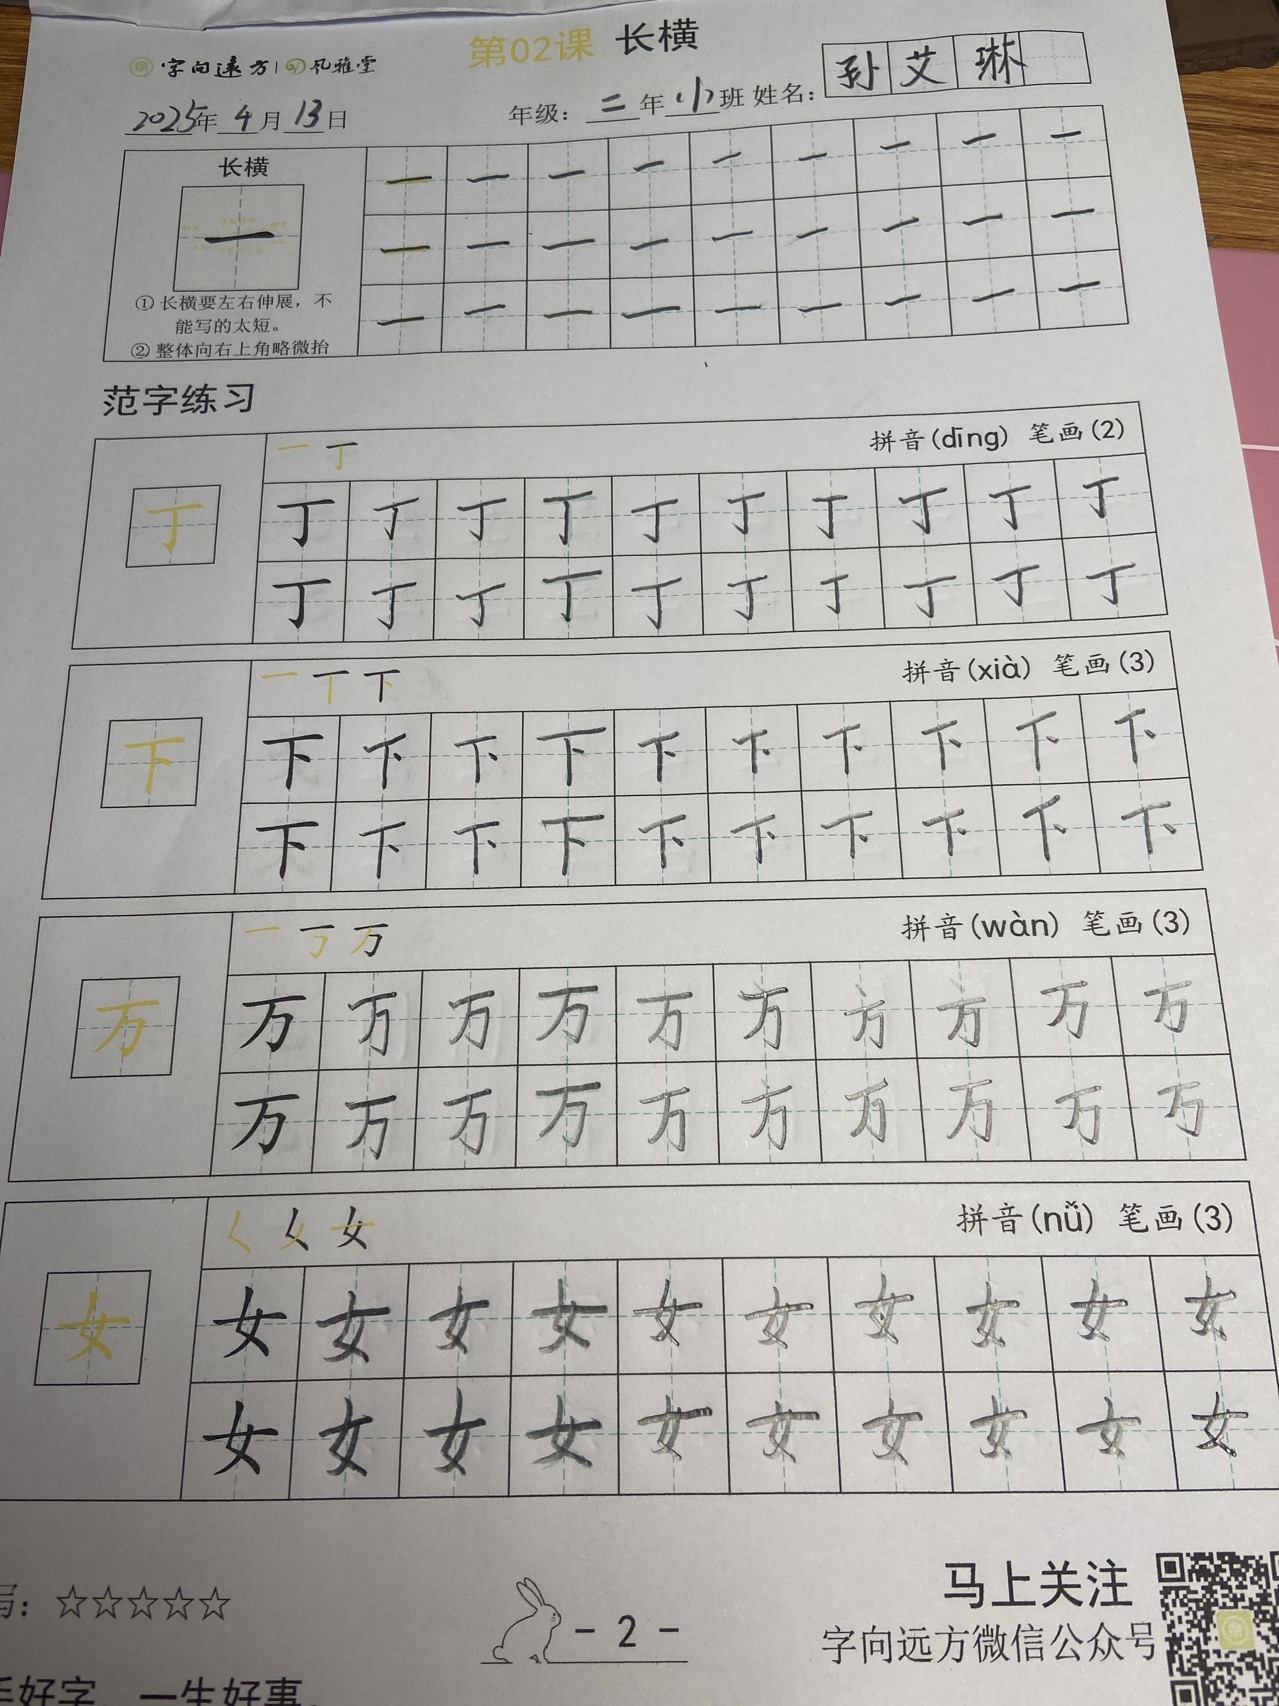 第02课 长横
字向远方 风雅堂
2025年4月13日 年级：二年小班 姓名：孙艾琳
长横
一 一 一 一 一 一 一 一 一
一 一 一 一 一 一 一 一 一
一 一 一 一 一 一 一 一 一
①长横要左右伸展，不
能写的太短。
②整体向右上角略微抬
范字练习
一 丁 拼音(dīng) 笔画(2)
丁
丁 丁 丁 丁 丁 丁 丁 丁 丁 丁
丁 丁 丁 丁 丁 丁 丁 丁 丁 丁
一 丅 下 拼音(xià) 笔画(3)
下
下 下 下 下 下 下 下 下 下 下
下 下 下 下 下 下 下 下 下 下
一 丂 万 拼音(wàn) 笔画(3)
万
万 万 万 万 万 万 万 万 万 万
万 万 万 万 万 万 万 万 万 万
拼音(nǚ) 笔画(3)
女
女 女 女 女 女 女 女 女 女 女
女 女 女 女 女 女 女 女 女 女
☆☆☆☆☆
- 2 -
马上关注
字向远方微信公众号
好字 一生好事